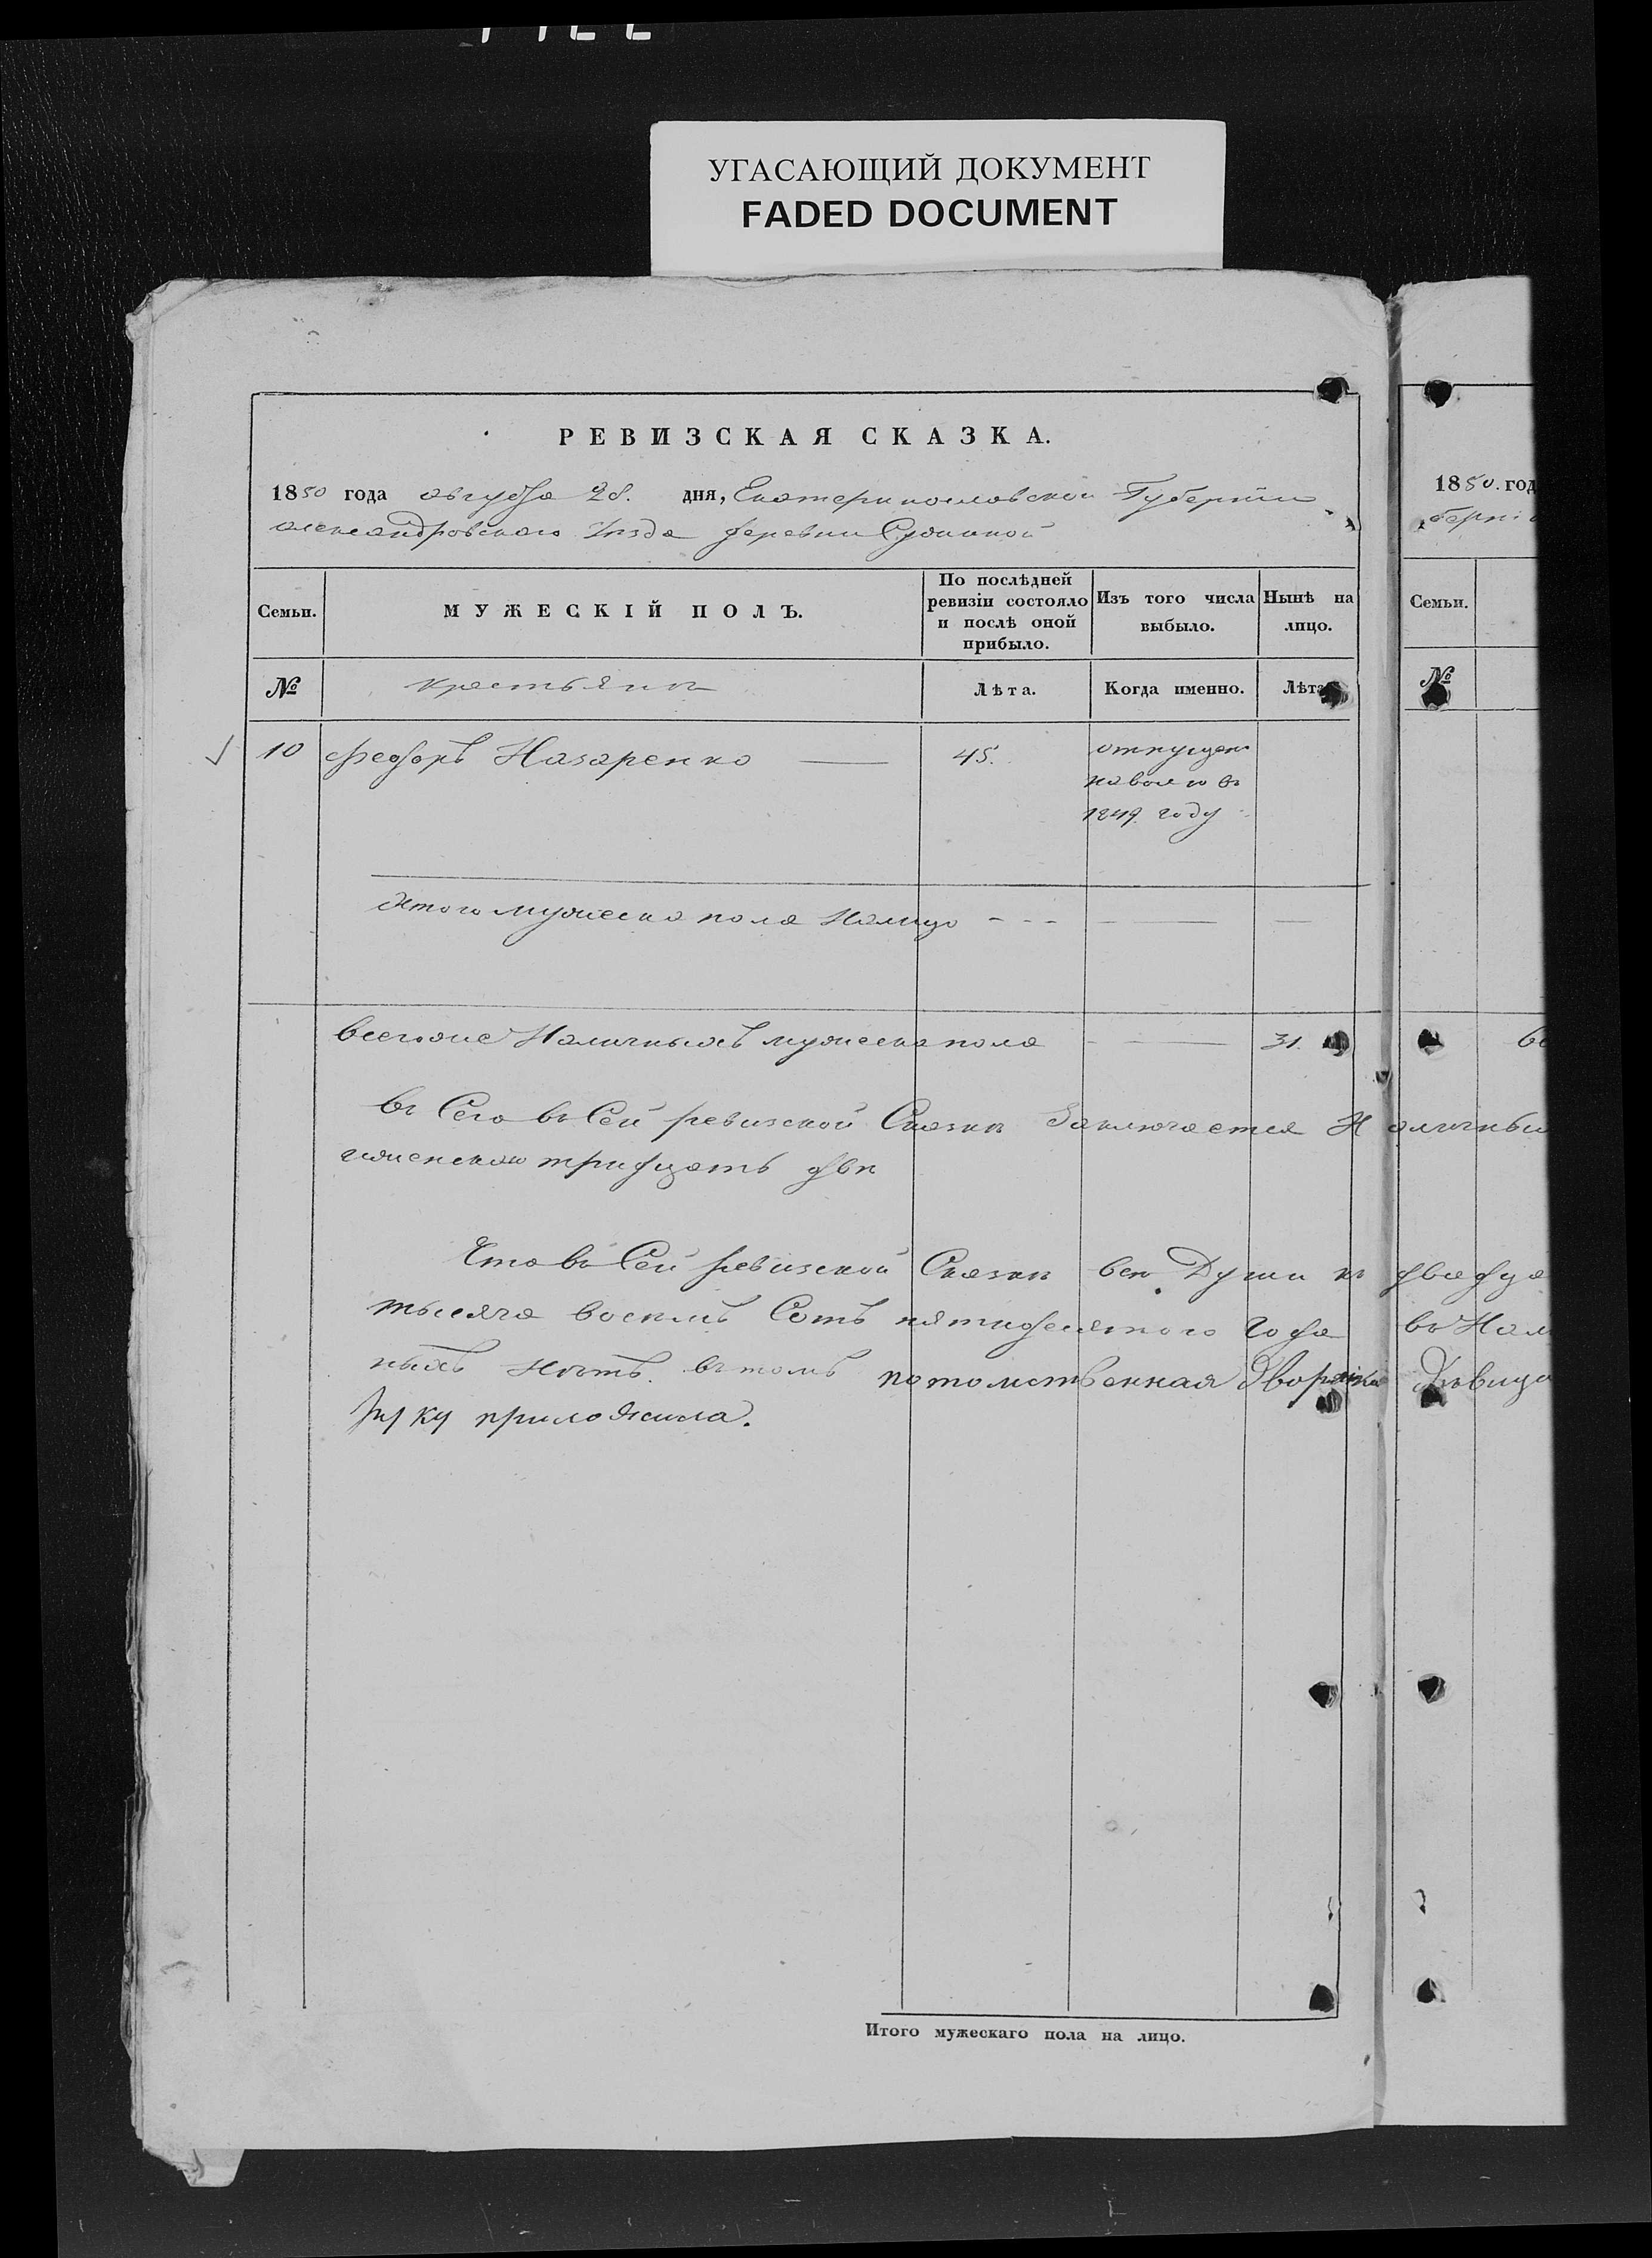 УГАСАЮЩИЙ ДОКУМЕНТ
FADED DOCUMENT
РЕВИЗСКАЯ СКАЗКА.
1850 года августа 28. дня, Екатеринославской Губернiи
александровского уезда деревни
Семьи.
МУЖЕСКIЙ ПОЛЪ.
По послѣдней ревизiи состояло и послѣ оной прибыло.
Изъ того числа выбыло.
Нынѣ на лицо.
№
крестьяне
Лѣта.
Когда именно.
Лѣта
10 Федоръ Назаренко — 45. отпущен
наволю в
1849. году
Итого мужеска пола Налицо
всегоже Наличныхъ мужеска пола 31.
в Сего в Сей ревизской Сказке Заключается Наличных
женскаго тридцать две
Что в Сей ревизской Сказке все Души к двадца
тысяча восемъ Сотъ пятидесятого Года в Нал
ныхъ Нетъ. в томъ потомственная Дворянка Девица
руку приложила.
Итого мужескаго пола на лицо.
1850. год
берні
Семьи.
№